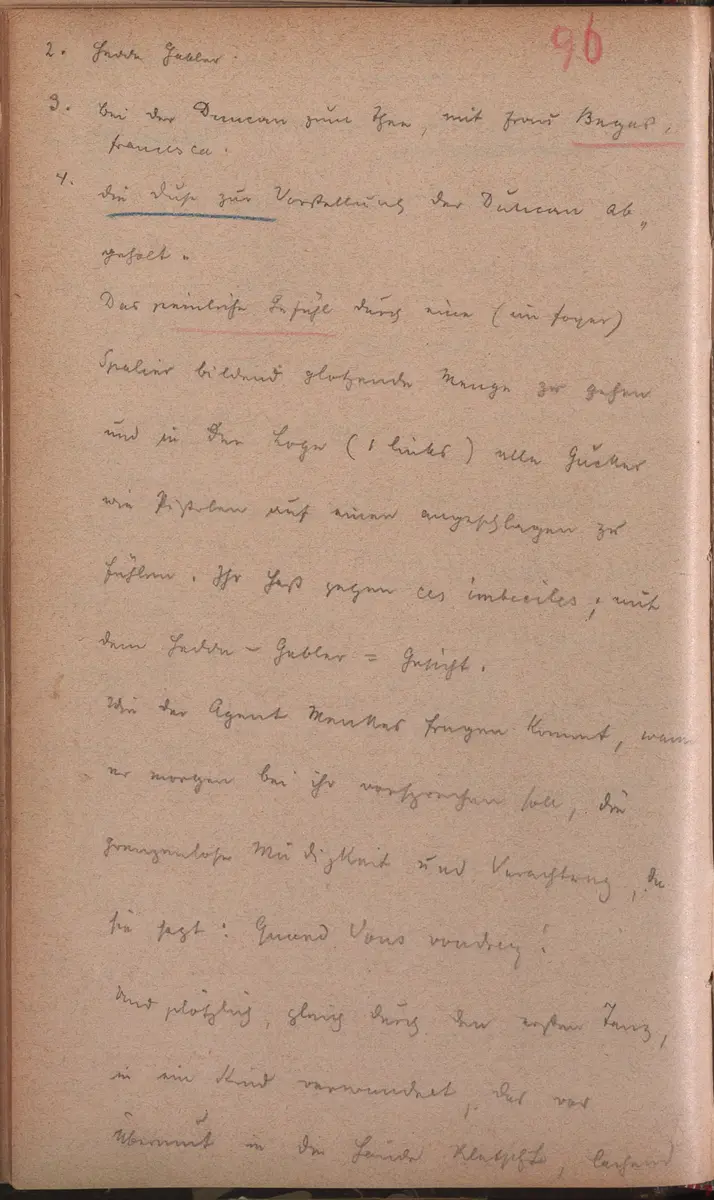 96
2. Hedda Gabler.
3. Bei der Duncan zum Thee, mit Frau Begas,
Francesca.
4. Die Duse zur Vorstellung der Duncan ab„
geholt.
Das peinliche Gefühl durch eine (im Foyer)
Spalier bildend glotzende Menge zu gehen
und in der Loge (1 links) alle Gucker
wie Pistolen auf einen angeschlagen zu
fühlen. Ihr Haß gegen ces imbeciles; mit
dem Hedda-Gabler=Gesicht.
Wie der Agent Menkes fragen kommt, wann
er morgen bei ihr vorsprechen soll, die
grenzenlose Müdigkeit und Verachtung, da
sie sagt: Quand Vous voudrez!
Und plötzlich, gleich durch den ersten Tanz,
in ein Kind verwandelt, das vor
Übermut in die Hände klatscht, lachend